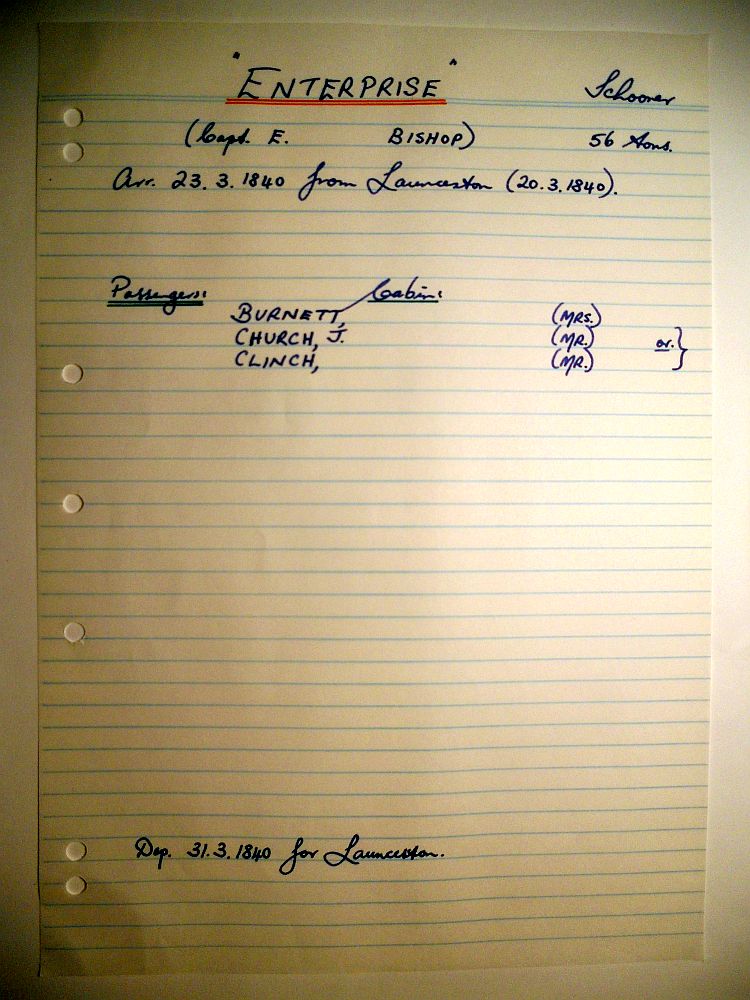 "ENTERPRISE" Schooner
(Capt. E. BISHOP) 56 tons.
Arr. 23.3.1840 from Launceston (20.3.1840).
Passengers: Cabin:
BURNETT, (MRS.)
CHURCH, J. (MR.) or. }
CLINCH, (MR.)
Dep. 31.3.1840 for Launceston.